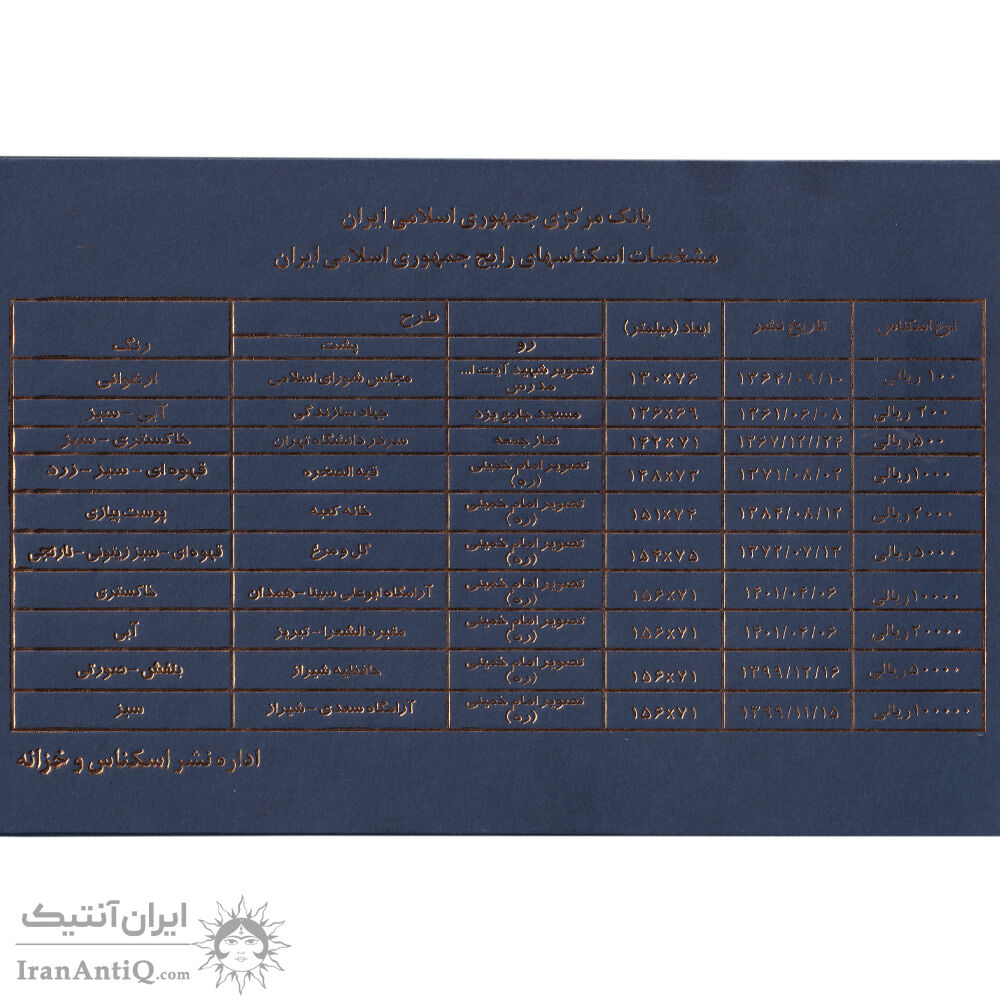 بانک مرکزی جمهوری اسلامی ایران
مشخصات اسکناسهای رایج جمهوری اسلامی ایران
نوع اسکناس تاریخ نشر ابعاد (میلیمتر) طرح رنگ
رو پشت
۱۰۰ ریالی ۱۳۶۴/۰۹/۱۰ ۱۳۰×۷۶ تصویر شهید آیت ا... مدرس مجلس شورای اسلامی ارغوانی
۲۰۰ ریالی ۱۳۶۱/۰۶/۰۸ ۱۳۶×۶۹ مسجد جامع یزد جهاد سازندگی آبی - سبز
۵۰۰ ریالی ۱۳۶۷/۱۲/۲۴ ۱۴۲×۷۱ نماز جمعه سردر دانشگاه تهران خاکستری - سبز
۱۰۰۰ ریالی ۱۳۷۱/۰۸/۰۲ ۱۴۸×۷۳ تصویر امام خمینی (ره) قبه الصخره قهوه‌ای - سبز - زرد
۲۰۰۰ ریالی ۱۳۸۴/۰۸/۱۲ ۱۵۱×۷۴ تصویر امام خمینی (ره) خانه کعبه پوست پیازی
۵۰۰۰ ریالی ۱۳۷۲/۰۷/۱۲ ۱۵۴×۷۵ تصویر امام خمینی (ره) گل و مرغ قهوه‌ای - سبز زیتونی - نارنجی
۱۰۰۰۰ ریالی ۱۴۰۱/۰۴/۰۶ ۱۵۶×۷۱ تصویر امام خمینی (ره) آرامگاه ابوعلی سینا - همدان خاکستری
۲۰۰۰۰ ریالی ۱۴۰۱/۰۴/۰۶ ۱۵۶×۷۱ تصویر امام خمینی (ره) مقبره الشعرا - تبریز آبی
۵۰۰۰۰ ریالی ۱۳۹۹/۱۲/۱۶ ۱۵۶×۷۱ تصویر امام خمینی (ره) حافظیه شیراز بنفش - صورتی
۱۰۰۰۰۰ ریالی ۱۳۹۹/۱۱/۱۵ ۱۵۶×۷۱ تصویر امام خمینی (ره) آرامگاه سعدی - شیراز سبز
اداره نشر اسکناس و خزانه
ایران آنتیک
IranAntiQ.com